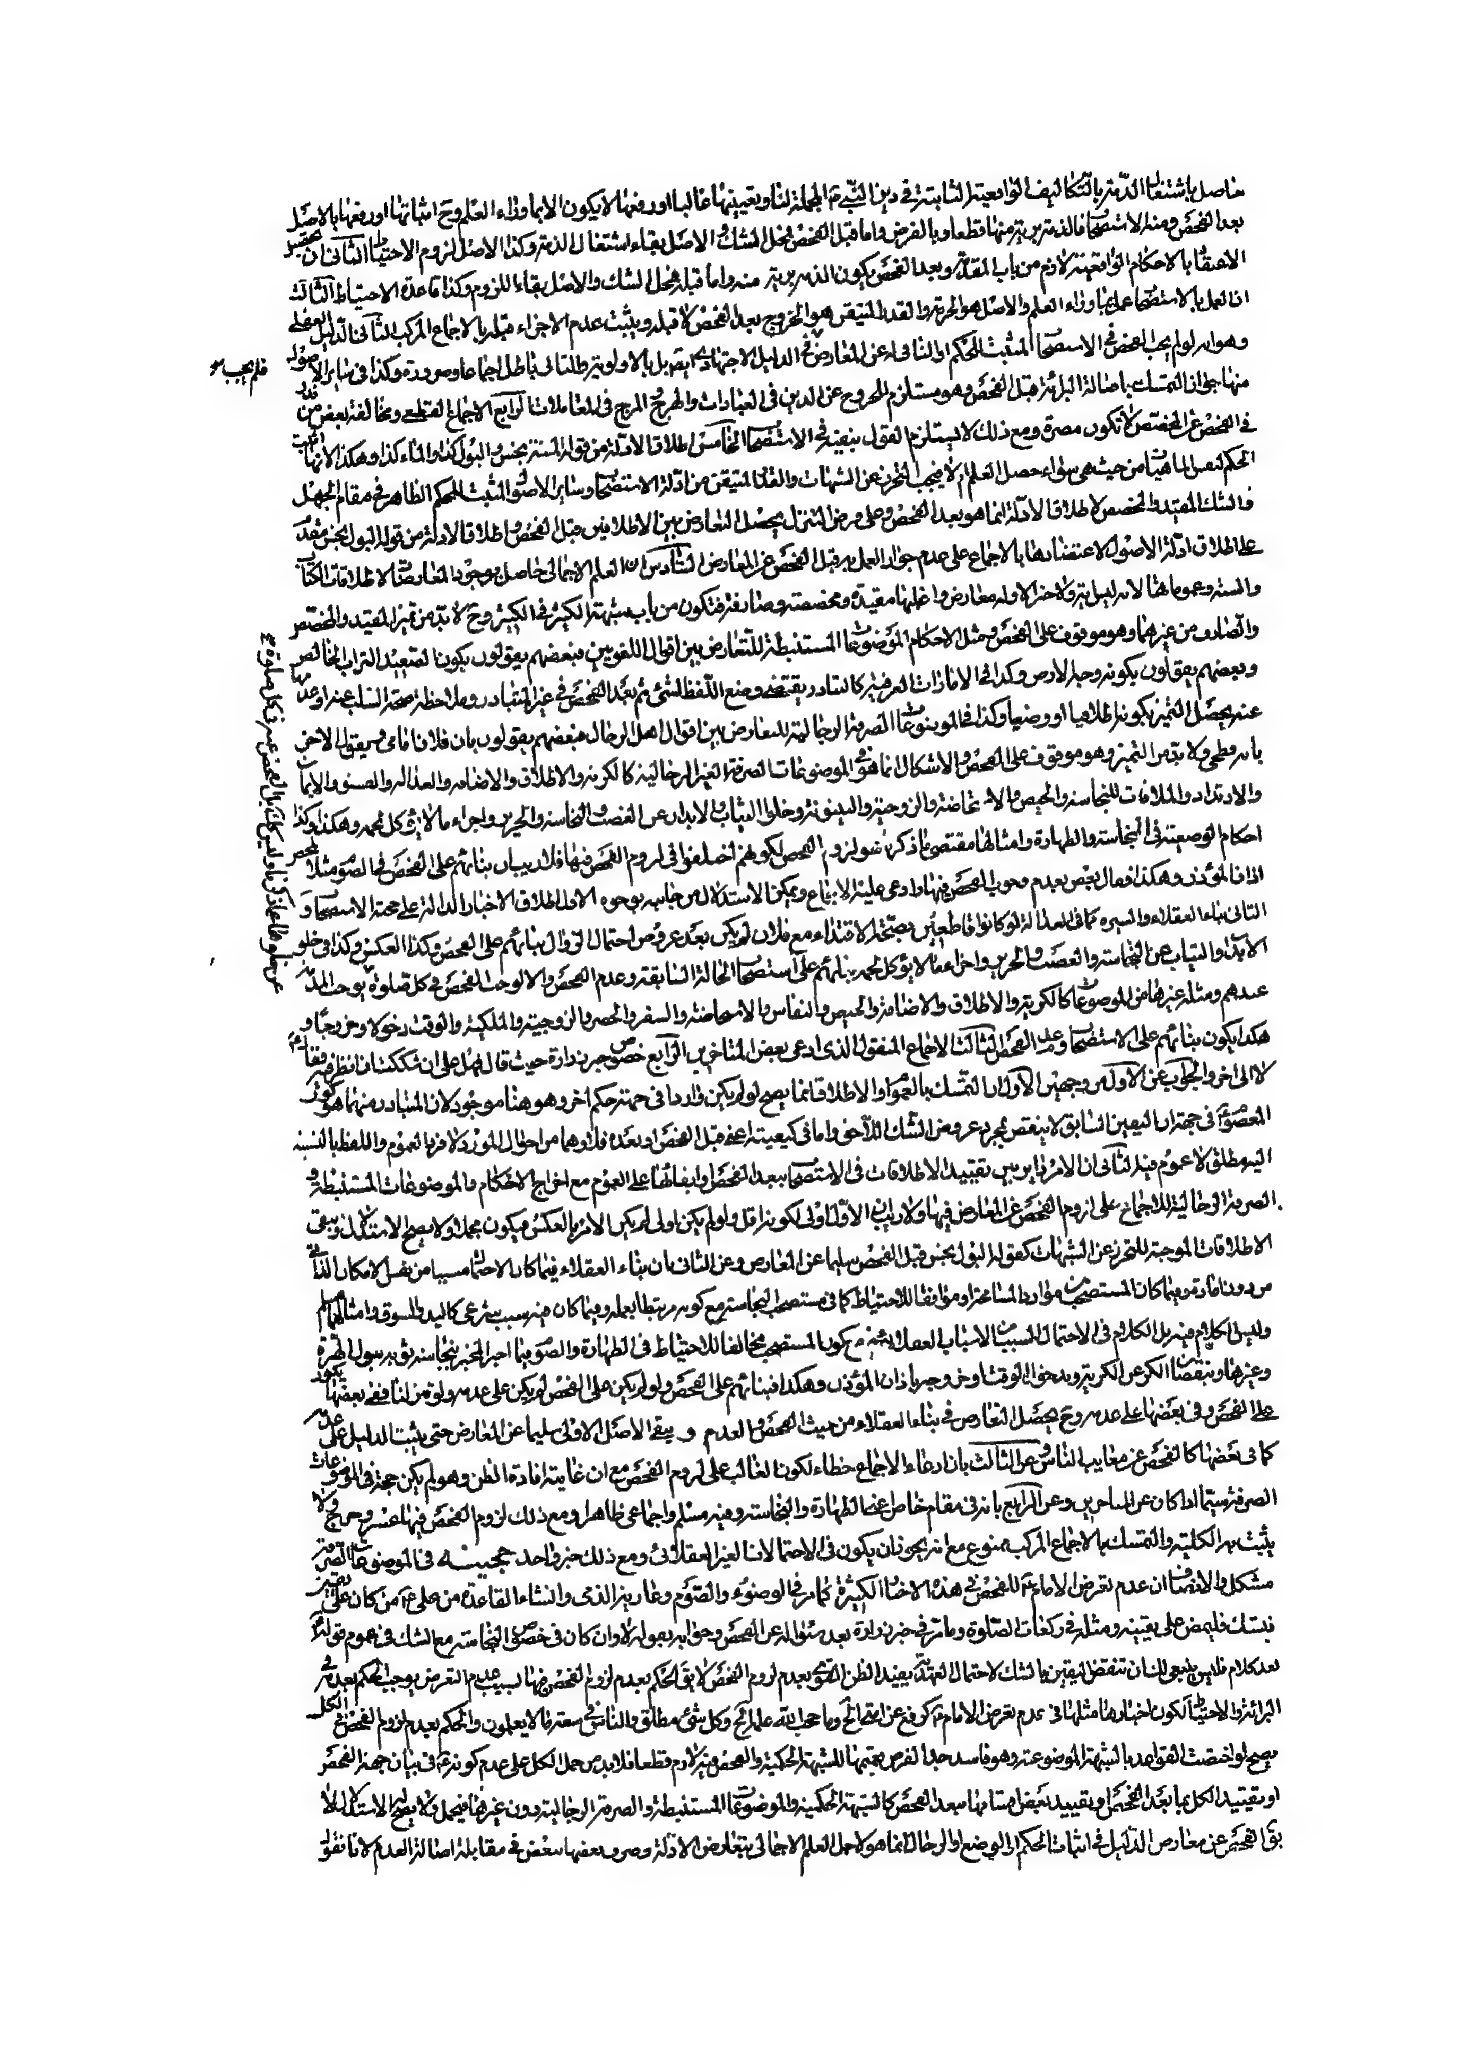 حاصل باشتغال الذمة بالتكاليف الواقعية الثابتة في دين النبي المجملة لنا وتعيينها غالبا او رفعها لا يكون الا بما وراء العلم وح اثباتها او رفعها بالاصل
بعد الفحص ومنه الاستصحاب فالذمة برية منها قطعا وبالفرض واما قبل الفحص فمحل الشك والاصل بقاء اشتغال الذمة وكذا الاصل لزوم الاحتياط الثاني ان تحصيل
الاعتقاد بالاحكام الواقعية لازم من باب المقدمة وبعد الفحص يكون الذمة برية منه واما قبله فمحل الشك والاصل بقاء اللزوم وكذا قاعدة الاحتياط الثالث
ان العمل بالاستصحاب عمل بما وراء العلم والاصل هو الحرمة والقدر المتيقن هو الخروج بعد الفحص لا قبله ويثبت عدم الاجزاء قبله بالاجماع المركب الثاني الدليل العقلي
وهو انه لو لم يجب الفحص في الاستصحاب المثبت للحكم او النافي له عن المعارض في الدليل الاجتهادي بالاولوية والتالي باطل اجماعا وضرورة وكذا في سائر الاصول
فلم يجب
منها جواز التمسك باصالة البرائة قبل الفحص وهو مستلزم للخروج عن الدين في العبادات والهرج والمرج في المعاملات الرابع الاجماع القطعي ومخالفة بعض من
في الفحص عن المخصص لا تكون مضرة ومع ذلك لا يستلزم القول بنفيه في الاستصحاب الخامس اطلاقات الادلة من قوله الميتة نجس والبول كذا والماء كذا وهكذا لانها تثبت
الحكم لنفس الماهيات من حيث هي سواء حصل العلم ام لا فيجب التحرز عن الشبهات والقدر المتيقن من ادلة الاستصحاب وسائر الاصول المثبت للحكم الظاهر في مقام الجهل
والشك المقيد والمخصص لاطلاقات الادلة انما هو بعد الفحص وعلى فرض التنزل يحصل التعارض بين الاطلاقين قبل الفحص واطلاقات الادلة من قوله البول نجس مقدم
على اطلاق ادلة الاصول لاعتضادها بالاجماع على عدم جواز العمل به قبل الفحص عن المعارض السادس ان العلم الاجمالي حاصل بوجود المعارضات لاطلاقات الكتاب
والسنة وعموماتها لانه ليس اية ولا خبر الا وله معارض واغلبها مقيدة ومخصصة وصارفة فتكون من باب شبهة الكثير في الكثير وح لا بد من تميز المقيد والمخصص
والصارف من غيرهما وهو موقوف على الفحص ومثل الاحكام الموضوعات المستنبطة للتعارض بين اقوال اللغويين فبعضهم يقولون بكون الصعيد التراب الخالص
وبعضهم يقولون بكونه وجه الارض وكذا في الامارات العرفية كالتبادر يقتضي وضع اللفظ لشئ ثم بعد الفحص في غير المتبادر وملاحظة صحة السلب عنه او عدمها
عنه يحصل التميز بكونه اطلاقيا او وضعيا وكذا في الموضوعات الصرفة الرجالية للتعارض بين اقوال اهل الرجال فبعضهم يقولون بان فلانا امامي وبعض يقول الاخر
بانه فطحي ولا بد من التميز وهو موقوف على الفحص والاشكال انما هو في الموضوعات الصرفة الغير الرجالية كالكرية والاطلاق والاضافه والعدالة والفسق والايمان
والارتداد والملاقات للنجاسة والحيض والاستحاضة والزوجية والبينونة وخلو الثياب والابدان عن الغصب والنجاسة والحرير واجزاء ما لا يؤكل لحمه وهكذا وكذا
احكام الوضعية في النجاسة والطهارة وامثالها مقتضى ما ذكرنا هو لزوم الفحص لكونهم اختلفوا في لزوم الفحص فيها فلا ريب ان بنائهم على الفحص في الصوم مثلا
اذان المؤذن وهكذا فقال بعض بعدم وجوب الفحص فيها وادعى عليه الاجماع ويمكن الاستدلال من جانبه بوجوه الاول اطلاق الاخبار الدالة على حجية الاستصحاب و
الثاني بناء العقلاء والسيرة كما في العدالة لو كانوا قاطعين بصحة الاقتداء مع فلان لم يكن بعد عروض احتمال الزوال بنائهم على الفحص وكذا العكس وكذا في خلو
الابدان والثياب عن النجاسة والغصب والحرير واجزاء ما لا يؤكل لحمه بنائهم على استصحاب الحالة السابقة وعدم الفحص والا لوجب الفحص في كل صلوة
عندهم ومثله غيرها من الموضوعات كالكرية والاطلاق والاضافة والحيض والنفاس والاستحاضة والسفر والحضر والزوجية والملكية والوقت دخولا وخروجا و
هكذا يكون بنائهم على الاستصحاب وعدم الفحص الثالث الاجماع المنقول الذي ادعى بعض المتاخرين الرابع خصوص خبر زرارة حيث قال فهل علي ان شككت ان انظر فيه فقال
لا الى اخر والجواب عن الاول من وجهين الاول ان التمسك بالعموم او الاطلاق انما يصح لو لم يكن واردا في جهة حكم اخر وهو هنا موجود لان المتبادر منها هو كون
المعصوم في جهة ان اليقين السابق لا ينقض بمجرد عروض الشك اللاحق واما في كيفيته اعني قبل الفحص او بعده فلا وهما من احوال المورد لا افراد العموم واللفظ بالنسبة
اليه مطلق لا عموم فيه الثاني ان الامر دائر بين تقييد الاطلاقات في الاستصحاب ببعد الفحص او ابقائها على العموم مع اخراج الاحكام والموضوعات المستنبطة و
الصرفة الرجالية للاجماع على لزوم الفحص عن المعارض فيها ولا ريب ان الاول اولى لكونه اقل ولو لم يكن اولى لم يكن الامر بالعكس فيكون مجملا ولا يصح الاستدلال وتبقى
الاطلاقات الموجبة للتحرز عن الشبهات كقوله البول نجس قبل الفحص سليما عن المعارض وعن الثاني بان بناء العقلاء فيما كان الاحتمال مسببا من نفس الامكان الذاتي
من دون امارة وفيما كان المستصحب من موارد المسامحة او موافقا للاحتياط كما في مستصحب النجاسة مع كونه مرتبطا بعمله وفيما كان فيه سبب شرعي كاليد والسوق وامثالهما مسلم
وليس الكلام فيه بل الكلام في الاحتمال المسبب من الاسباب العقلائية مع كون المستصحب مخالفا للاحتياط في الطهارة والصوم فيما اخبر المخبر بنجاسة ثوبه ببول الهرة
وغيرها وبنقصان الكر عن الكرية وبدخول الوقت او خروجه باذان المؤذن وهكذا فبنائهم على الفحص ولو لم يكن على الفحص لم يكن على عدمه ولو تنزلنا ففي بعضها يكون
على الفحص وفي بعضها على عدمه وح يحصل التعارض في بناء العقلاء من حيث الفحص والعدم ويبقى الاصل الاولى سليما عن المعارض حتى يثبت الدليل على عدمه
كما في بعضها كالفحص عن معايب الناس وعن الثالث بان ادعاء الاجماع خطاء لكون الغالب على لزوم الفحص مع ان غايته افادة الظن وهو لم يكن حجة في الموضوعات
الصرفة سيما اذا كان عن المتاخرين وعن الرابع بانه في مقام خاص اعني الطهارة والنجاسة وفيه مسلم واجماعي ظاهرا ومع ذلك لزوم الفحص فيها عسر وحرج ولا
يثبت به الكلية والتمسك بالاجماع المركب ممنوع مع انه يجوز ان يكون في الاحتمالات الغير العقلائي ومع ذلك خبر واحد حجيته في الموضوعات الصرفة
مشكل والانصاف ان عدم تعرض الامام للفحص في هذه الاخبار الكثيرة كما مر في الوضوء والصوم وعارية الذمي وانشاء القاعدة من علي ع من كان على يقين
فشك فليمض على يقينه ومثله في ركعات الصلوة وما مر في خبر زرارة بعد سئواله عن الفحص وجوابه بقوله لا وان كان في خصوص النجاسة مع الشك في عموم قوله
بعد كلام فليس ينبغي لك ان تنقض اليقين بالشك لاحتمال العهدية يفيد الظن القوي بعدم لزوم الفحص لا يق الحكم بعدم لزوم الفحص فيها بسبب عدم التعرض يوجب الحكم بعدمه في
البرائة والاحتياط لكون اخبارهما مثلها في عدم تعرض الامام كرفع عن امتي الخ وما حجب الله علمه الخ وكل شئ مطلق والناس في سعة ما لا يعلمون والحكم بعدم لزوم الفحص في الكل
يصح لو اختصت القواعد بالشبهة الموضوعية وهو فاسد جدا لفرض تعميمها للشبهة الحكمية والفحص فيه لازم قطعا فلا بد من حمل الكل على عدم كونه في بيان جهة الفحص
او بتقييد الكل بما بعد الفحص او بتقييد بعض مقاماتها ببعد الفحص كالشبهة الحكمية والموضوعات المستنبطة والصرفة الرجالية دون غيرها فيجمل ولا يصح الاستدلال لا
يق الفحص عن معارض الدليل في اثبات الحكم او الوضع او الرجال انما هو لاجل العلم الاجمالي بتعارض الادلة وصرف بعضها ببعض في مقابلة اصالة العدم لانا نقول